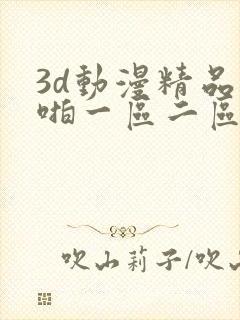 3d動漫精品
啪一區二區
吹山莉子/吹山